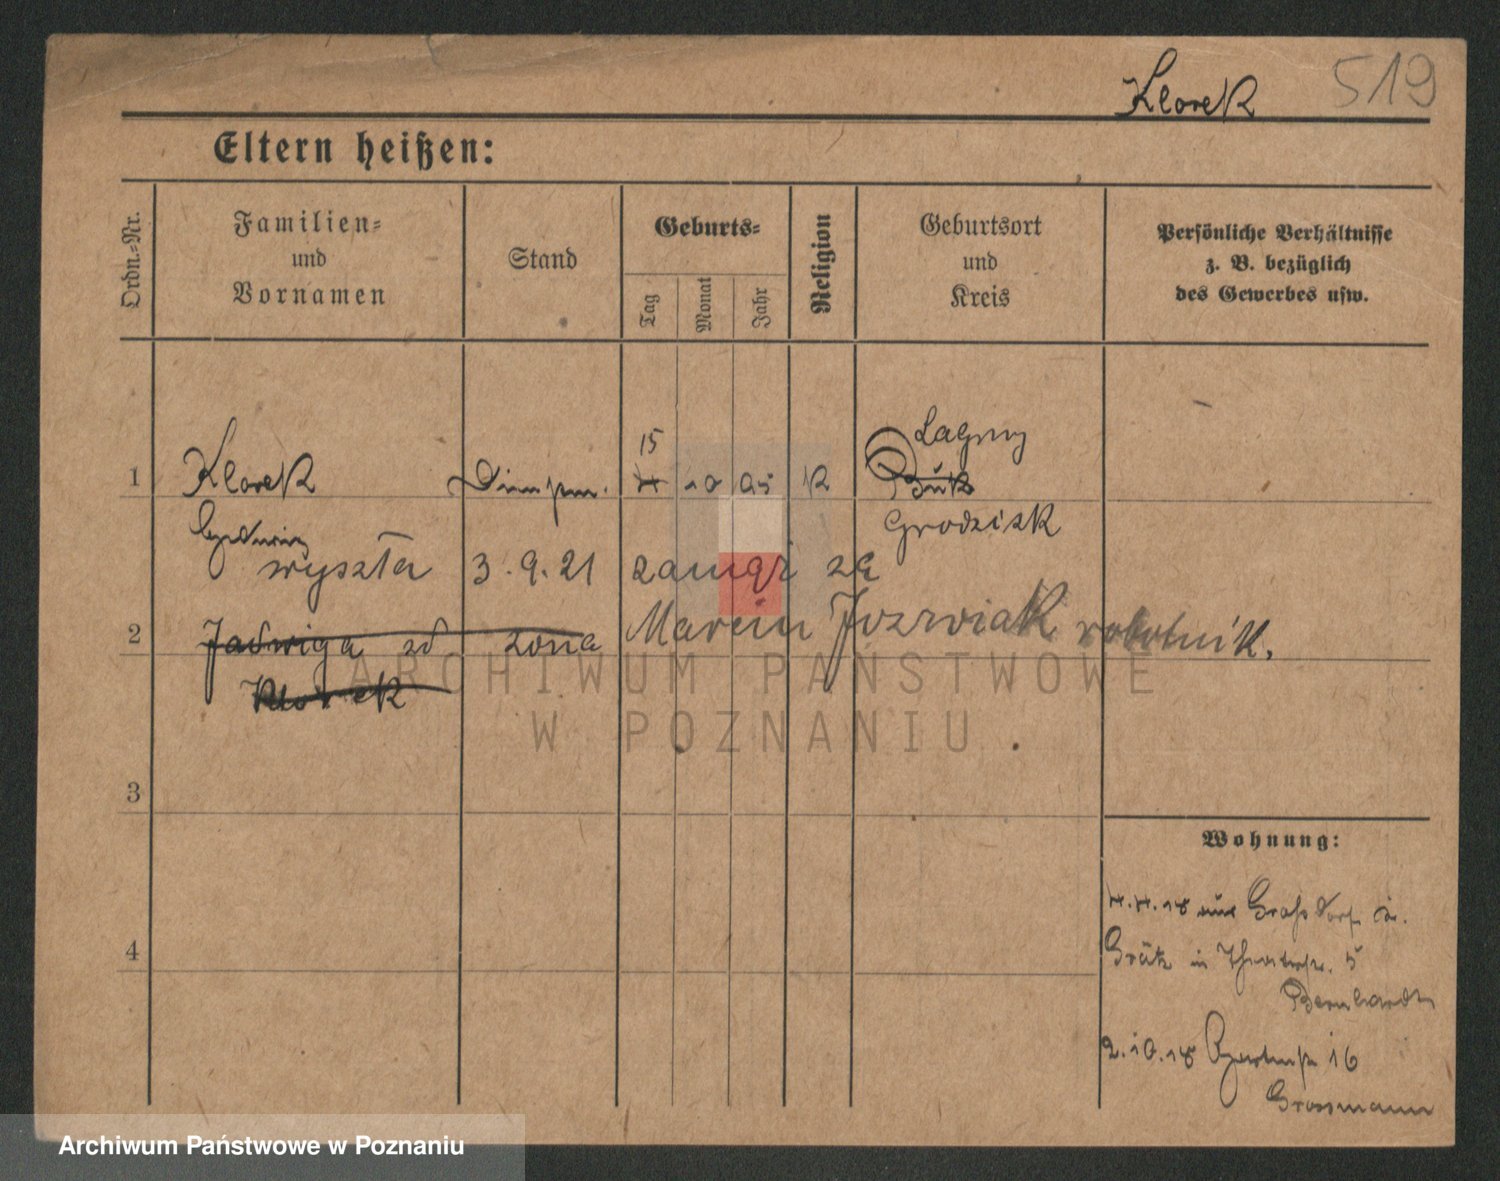 Klorek 519
Eltern heißen:
Ordn.-Nr.
Familien-
und
Vornamen
Stand
Geburts-
Tag
Monat
Jahr
Religion
Geburtsort
und
Kreis
Persönliche Verhältnisse
z. B. bezüglich
des Gewerbes usw.
15
1 Klorek 10 95 K
Buk
Grodzisk
wyszła 3.9.21 zamąż za
Marcin Jozwiak robotnik.
2 Jadwiga zd żona
Klorek
ARCHIWUM PAŃSTWOWE
W POZNANIU
3
Wohnung:
4.4.18 aus Grafsdorf
4 Grätz in 5
Bernhardt
2.10.18 16
Grossmann
Archiwum Państwowe w Poznaniu